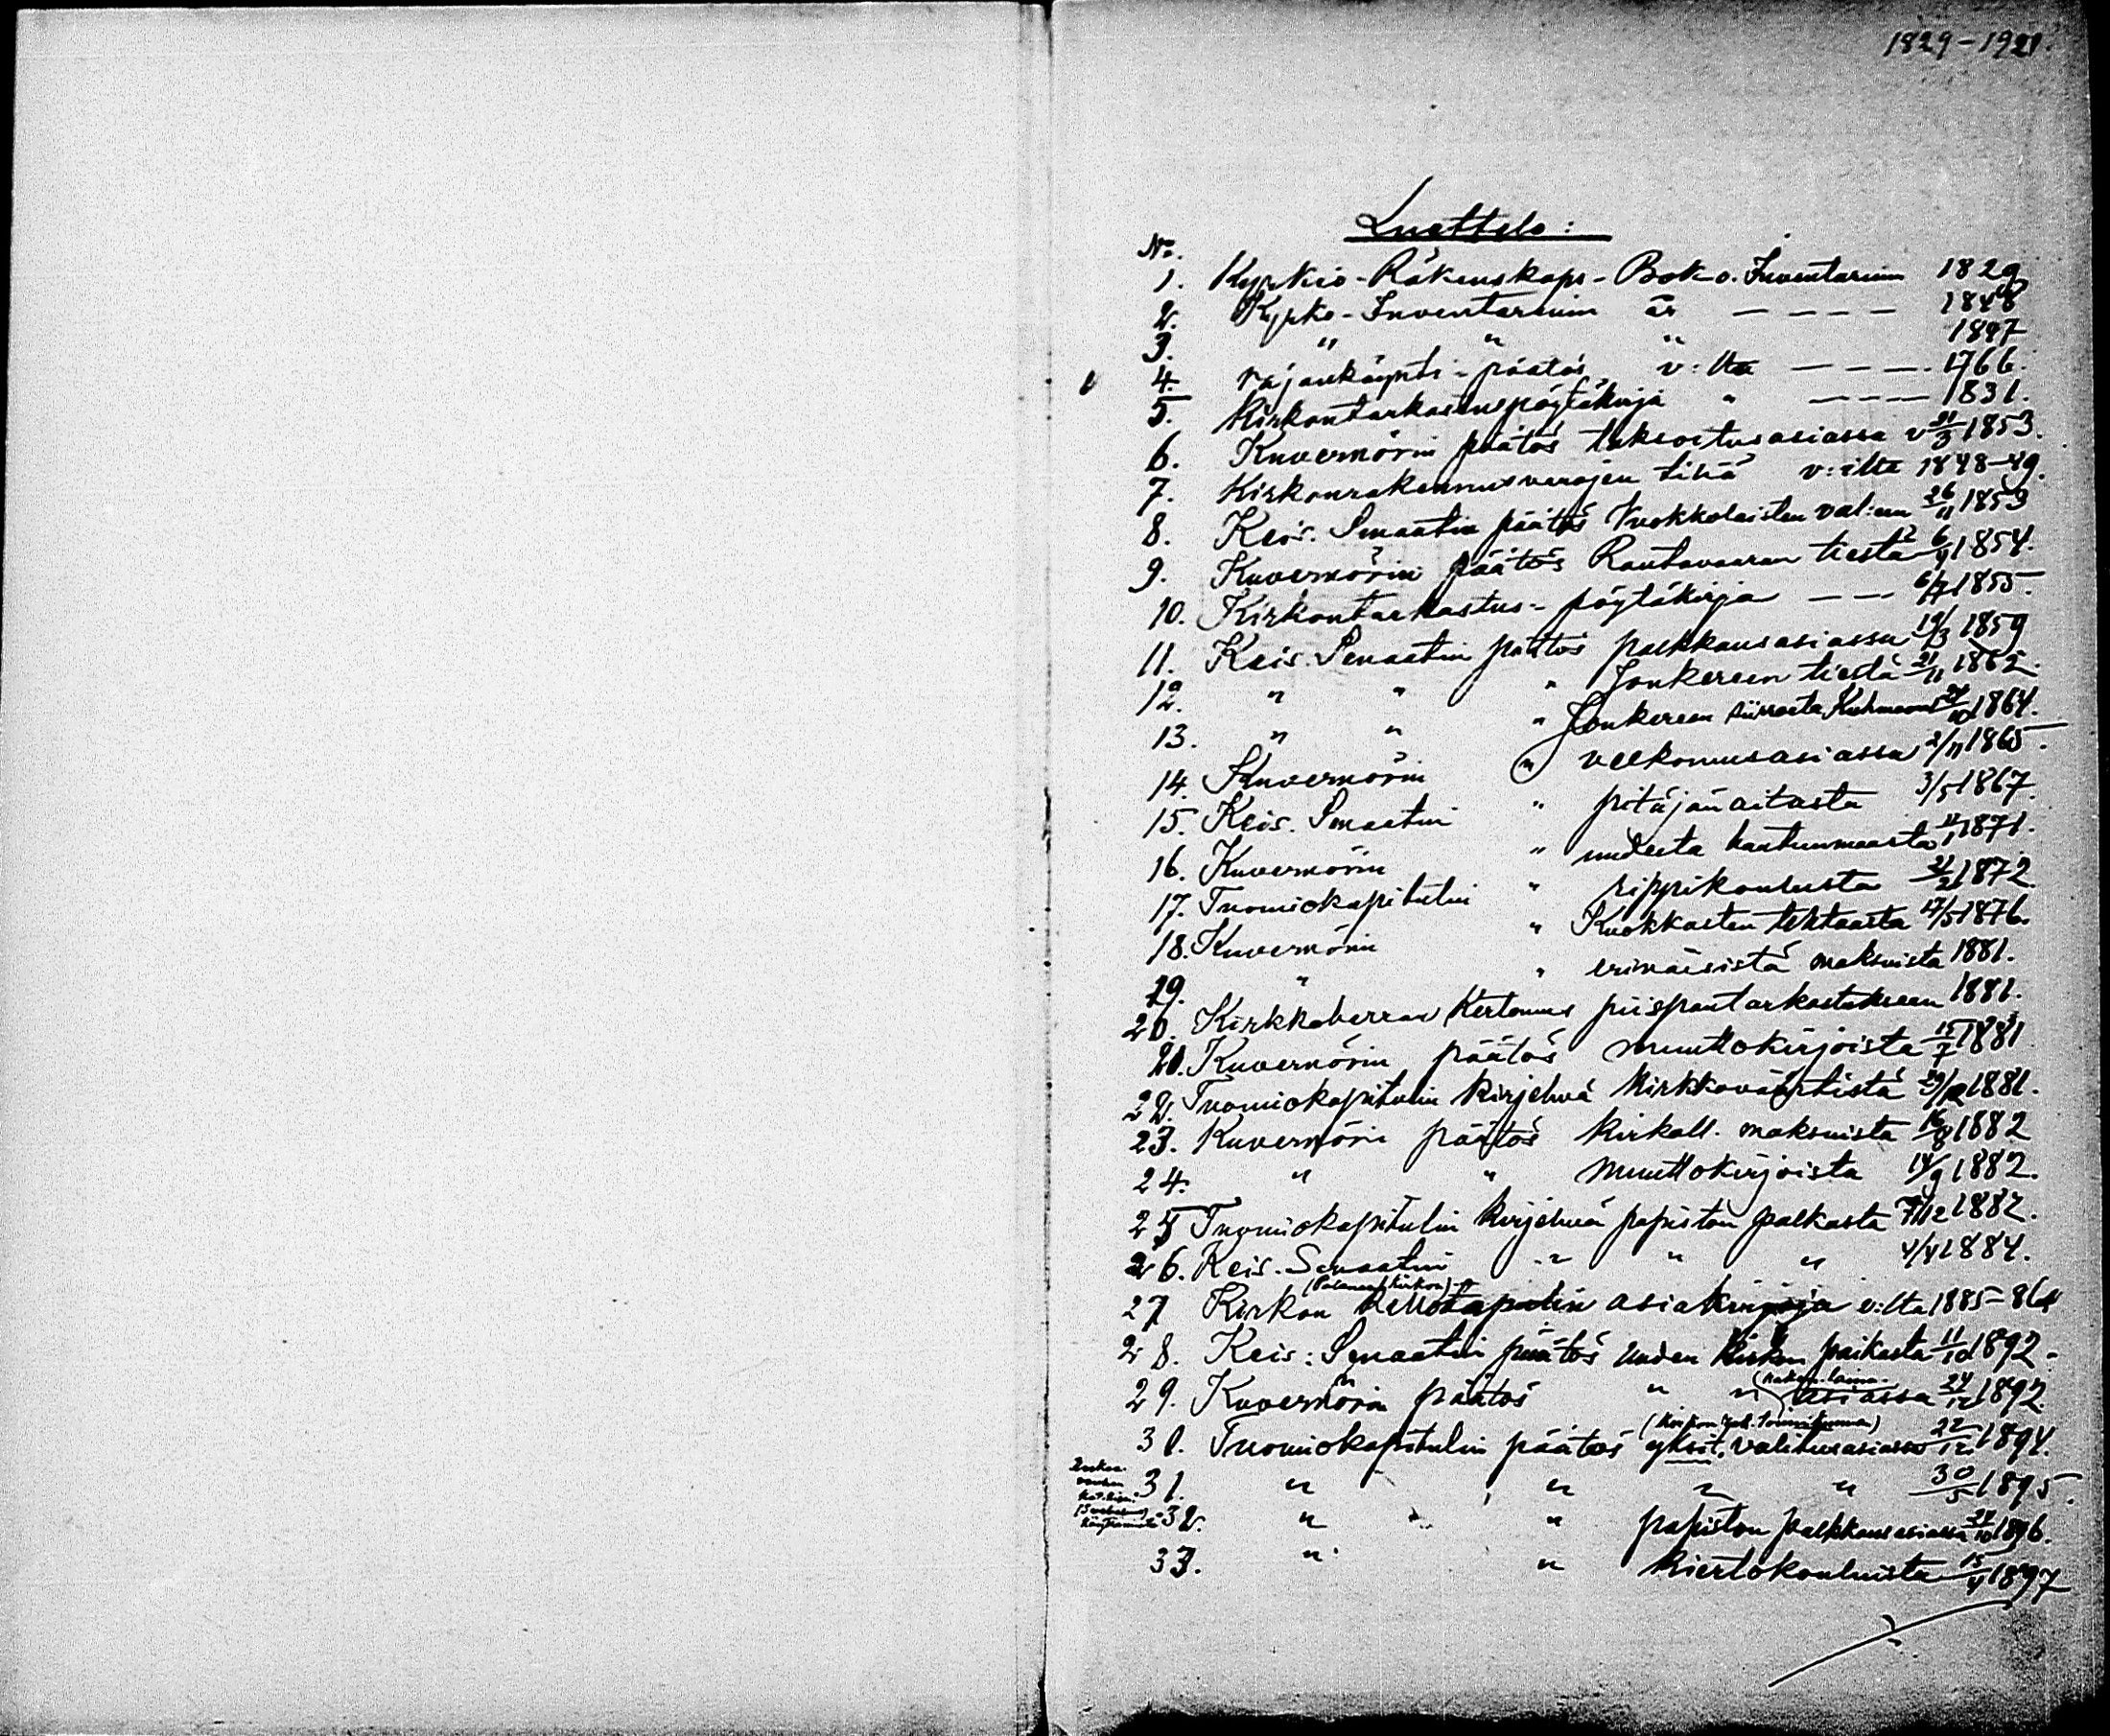 1829-1921.
Luettelo:
No.
1. Kyrkio-Räkenskaps-Bok o. Inventarium 1829
2. Kyrko-Inventarium år - - - - 1848
3. " " " 1897
4. rajankäynti-päätös v:lta - - - - 1766.
5. Kirkontarkastuspöytäkirja " - - - - 1831.
6. Kuvernörin päätös taksoitusasiassa v 21/3 1853.
7. Kirkonrakennusverojen tiliä v:ilta 1848-49.
8. Keis. Senaatin päätös Vuokkolaisten val:een 26/11 1853
9. Kuvernörin päätös Rautavaaran tiestä 6/4 1854.
10. Kirkontarkastus-pöytäkirja - - - 1855.
11. Keis. Senaatin päätös palkkausasiassa 19/3 1859
12. " " " Jonkereen tiestä 21/11 1862.
13. " " " Jonkereen siirrosta Kuhmoon 1864.
14. Kuvernörin " veekonnusasiassa 2/11 1865.
15. Keis. Senaatin " pitäjän aitasta 3/5 1867.
16. Kuvernörin " uudesta hautuumaasta 1871.
17. Tuomiokapitulin " rippikoulusta 21/2 1872.
18. Kuvernörin " Kuokkasten tehtaasta 17/5 1876.
19. " " erinäisistä maksuista 1881.
20. Kirkkoherran Kertomus piispantarkastukseen 1881.
21. Kuvernörin päätös muuttokirjoista 15/7 1881
22. Tuomiokapitulin kirjelmä kirkkoväärtistä 29/12 1881.
23. Kuvernörin päätös kirkoll. maksuista 16/8 1882
24. " " muuttokirjoista 14/9 1882.
25 Tuomiokapitulin kirjelmä papiston palkasta 7/12 1882.
26. Keis. Senaatin " " " 4/4 1884.
(Palaneen kirkon)
27 Kirkon Kellotapulin asiakirjoja v:lta 1885-86
28. Keis: Senaatin päätös uuden kirkon paikasta 11/10 1892.
(raken. laina-
29. Kuvernörin päätös " " asiassa 24/12 1892.
(Kirkon rak. toimikunnan)
30. Tuomiokapitulin päätös yksit. valitusasiassa 22/12 1894.
31. " " " " 30/5 1895.
32. " " papiston palkkausasiassa 27/10 1896.
33. " " kiertokouluista 15/4 1897